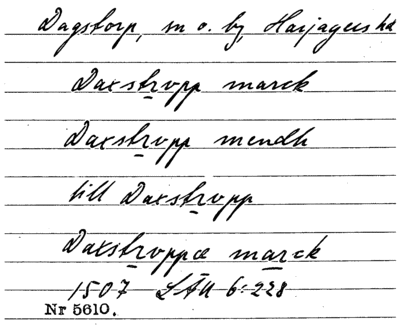 Dagstorp, sn o. by, Harjagers hd
Daxstropp marck
Daxstropp mendh
till Daxstropp
Daxstroppæ marck
1507 LÄU 6:228
Nr 5610.